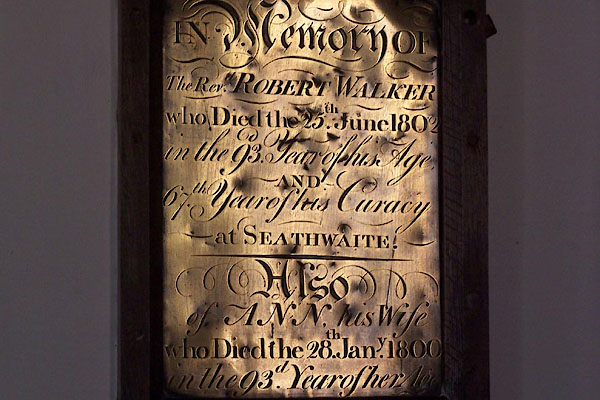 IN Memory OF
The Rev.d ROBERT WALKER
who Died the 25.th June 1802
in the 93.d Year of his Age,
AND
67th Year of his Curacy
at SEATHWAITE.
Also
of ANN, his Wife
who Died the 28.th Jan.y 1800
in the 93.d Year of her